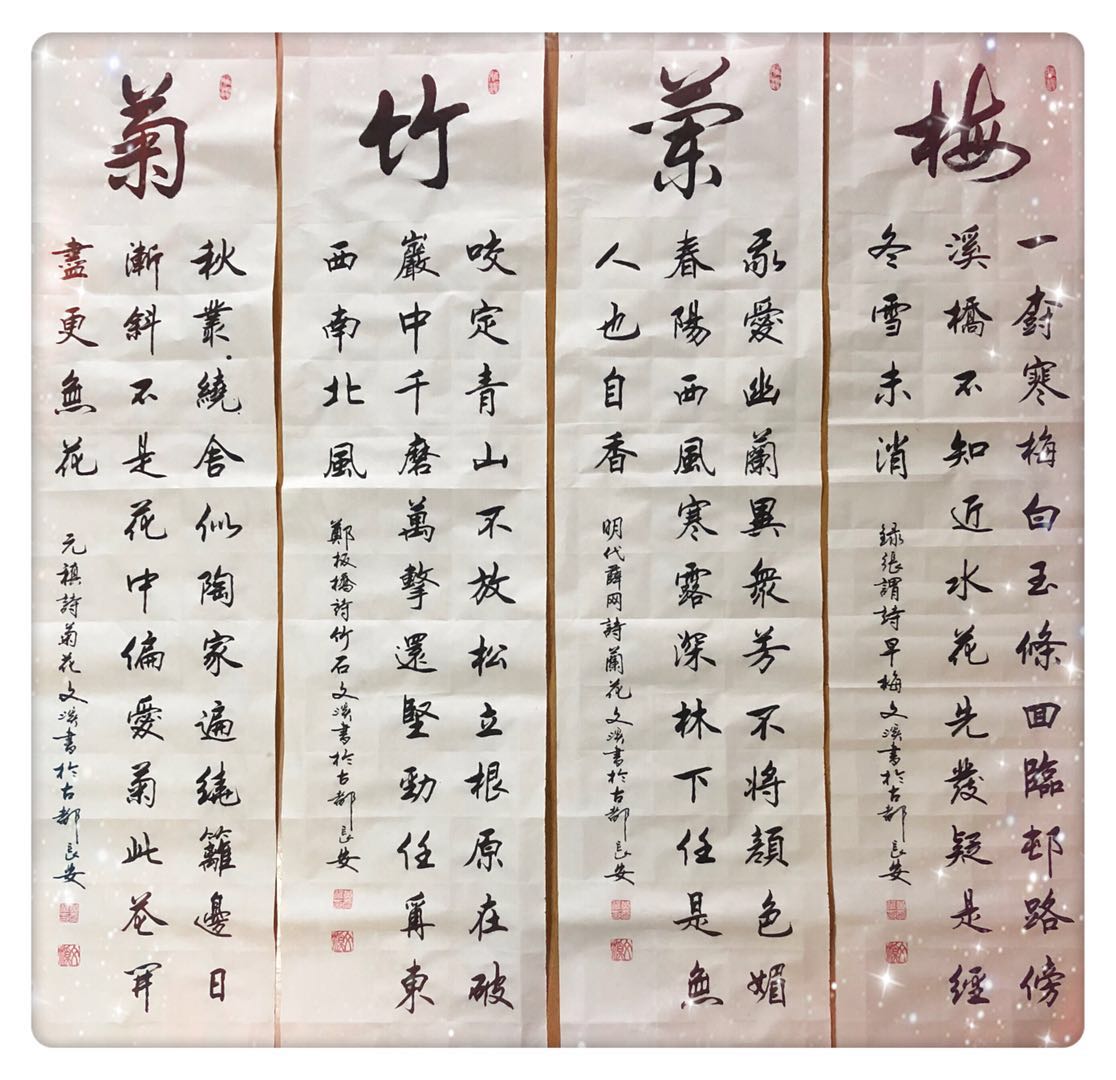 梅
一尌寒梅白玉條回臨邨路傍
溪橋不知近水花先發疑是經
冬雪未消
録張謂詩早梅文溪書於古都長安
蘭
我愛幽蘭異衆芳不將顔色媚
春陽西風寒露深林下任是無
人也自香
明代薛网詩蘭花文溪書於古都長安
竹
咬定青山不放松立根原在破
巖中千磨萬擊還堅勁任爾東
西南北風
鄭板橋詩竹石文溪書於古都長安
菊
秋叢繞舍似陶家遍繞籬邊日
漸斜不是花中偏愛菊此花開
盡更無花
元稹詩菊花文溪書於古都長安